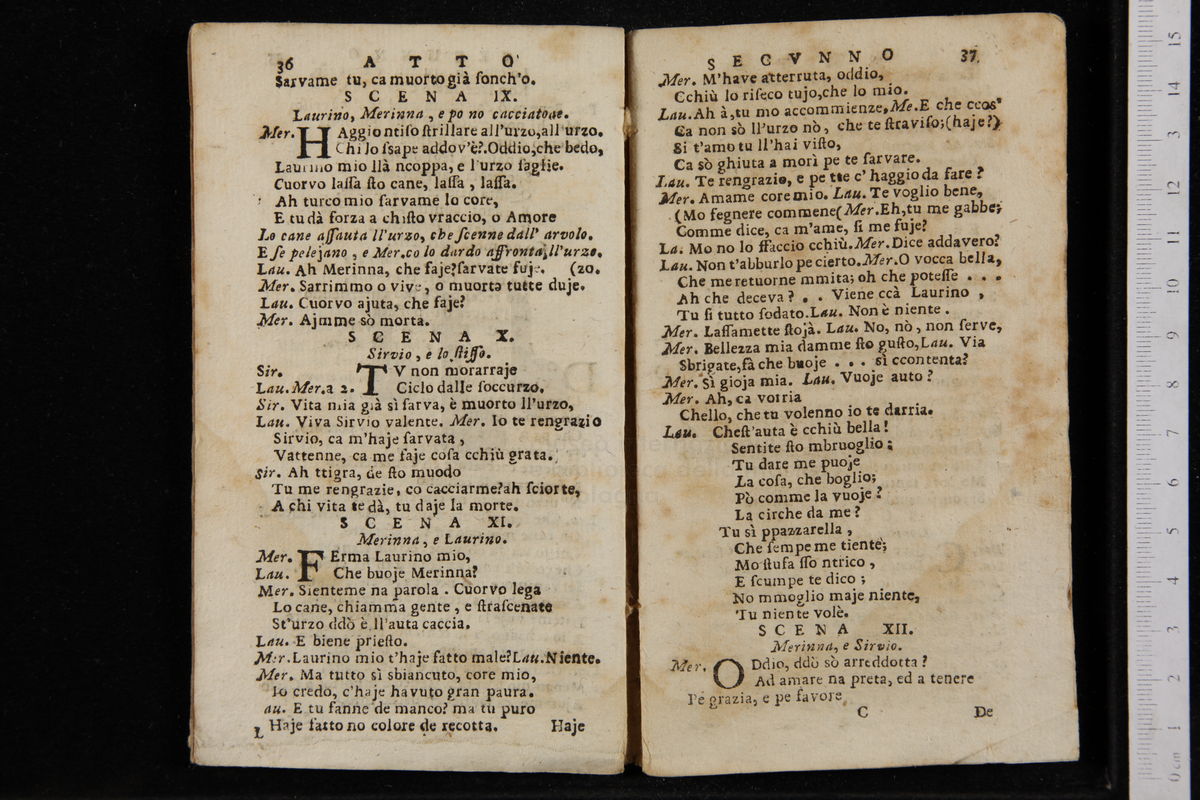 36 A T T O
Sarvame tu, ca muorto già ſonch'o.
S C E N A IX.
Laurino, Merinna, e po no cacciatore.
Mer. HAggio ntiſo ſtrillare all'urzo,all'urzo.
Chi lo ſsape addov'è?.Oddio,che bedo,
Laurino mio llà ncoppa, e l'urzo ſaglie.
Cuorvo laſſa ſto cane, laſſa, laſſa.
Ah turco mio ſarvame lo core,
E tu dà forza a chiſto vraccio, o Amore
Lo cane aſſauta ll'urzo, che ſcenne dall' arvolo.
E ſe pelejano, e Mer.co lo dardo affronta ll'urzo.
Lau. Ah Merinna, che faje?ſarvate fuje. (zo.
Mer. Sarrimmo o vive, o muorte tutte duje.
Lau. Cuorvo ajuta, che faje?
Mer. Ajmme sò morta.
S C E N A X.
Sirvio, e lo ſtiſſo.
Sir. TV non morarraje
Lau.Mer.a 2. Cielo dalle ſoccurzo.
Sir. Vita mia già sì ſarva, è muorto ll'urzo,
Lau. Viva Sirvio valente. Mer. Io te rengrazio
Sirvio, ca m'haje ſarvata,
Vattenne, ca me faje coſa cchiù grata.
Sir. Ah ttigra, de ſto muodo
Tu me rengrazie, co cacciarme?ah ſciorte,
A chi vita te dà, tu daje la morte.
S C E N A XI.
Merinna, e Laurino.
Mer. FErma Laurino mio,
Lau. Che buoje Merinna?
Mer. Sienteme na parola. Cuorvo lega
Lo cane, chiamma gente, e ſtraſcenate
St'urzo ddò è ll'auta caccia.
Lau. E biene prieſto.
Mer.Laurino mio t'haje fatto male?Lau.Niente.
Mer. Ma tutto sì sbiancuto, core mio,
Io credo, c'haje havuto gran paura.
Lau. E tu fanne de manco? ma tu puro
Haje fatto no colore de recotta. Haje
S E C V N N O 37
Mer. M'have atterruta, oddio,
Cchiù lo riſeco tujo,che lo mio.
Lau.Ah à,tu mo accommienze,Me.E che ccos'
Ca non sò ll'urzo nò, che te ſtraviſo;(haje?)
Si t'amo tu ll'hai viſto,
Ca sò ghiuta a morì pe te ſarvare.
Lau. Te rengrazio, e pe tte c' haggio da fare?
Mer. Amame core mio. Lau. Te voglio bene,
(Mo fegnere commene(Mer.Eh,tu me gabbe;
Comme dice, ca m'ame, ſi me fuje?
La. Mo no lo ffaccio cchiù.Mer.Dice addavero?
Lau. Non t'abburlo pe cierto.Mer.O vocca bella,
Che me retuorne mmita; oh che poteſſe . . .
Ah che deceva? . . Viene ccà Laurino,
Tu ſi tutto ſodato.Lau. Non è niente.
Mer. Laſſamette ſtojà. Lau. No, nò, non ſerve,
Mer. Bellezza mia damme ſto guſto,Lau. Via
Sbrigate,fà che buoje . . . sì ccontenta?
Mer. Sì gioja mia. Lau. Vuoje auto?
Mer. Ah, ca vorria
Chello, che tu volenno io te darria.
Lau. Cheſt'auta è cchiù bella!
Sentite ſto mbruoglio:
Tu dare me puoje
La coſa, che boglio;
Pò comme la vuoje?
La cirche da me?
Tu sì ppazzarella,
Che ſempe me tiente;
Mo ſtufa ſſo ntrico,
E ſcumpe te dico;
No mmoglio maje niente,
Tu niente volè.
S C E N A XII.
Merinna, e Sirvio.
Mer. ODdio, ddò sò arreddotta?
Ad amare na preta, ed a tenere
Pe grazia, e pe favore
C De
15
14
13
12
11
10
9
8
7
6
5
4
3
2
1
0 cm